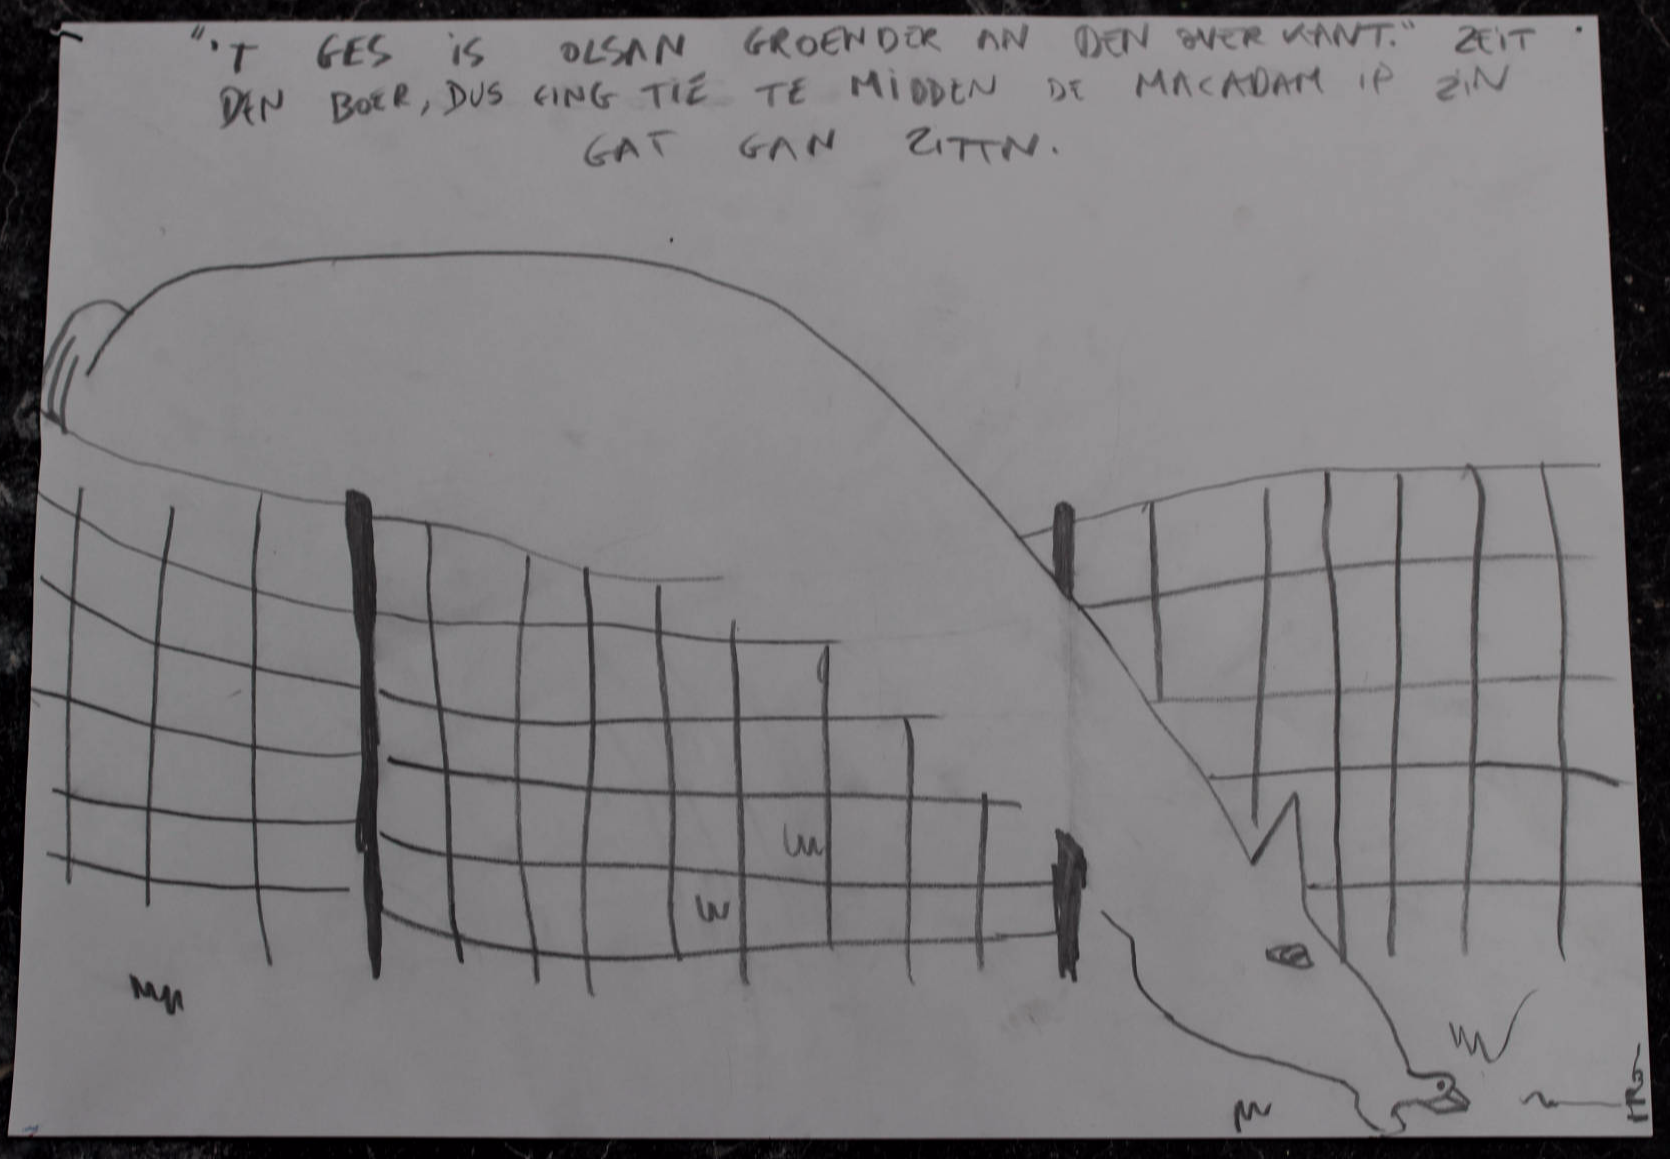 "'T GES IS OLSAN GROENDER AN DEN OVERKANT." ZEIT
DEN BOER, DUS GING TIE TE MIDDEN DE MACADAM IP ZIN
GAT GAN ZITTN.